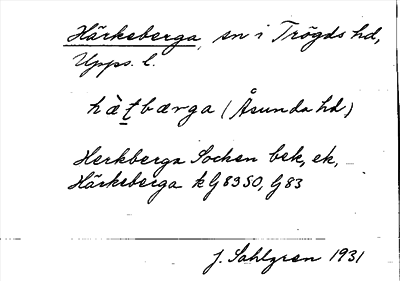 Härkeberga, sn i Trögds hd,
Upps. l.
hàṭbærga (Åsunda hd)
Herkberga Sochen bek, ek,
Härkeberga k G 83 SO, G 83
J. Sahlgren 1931